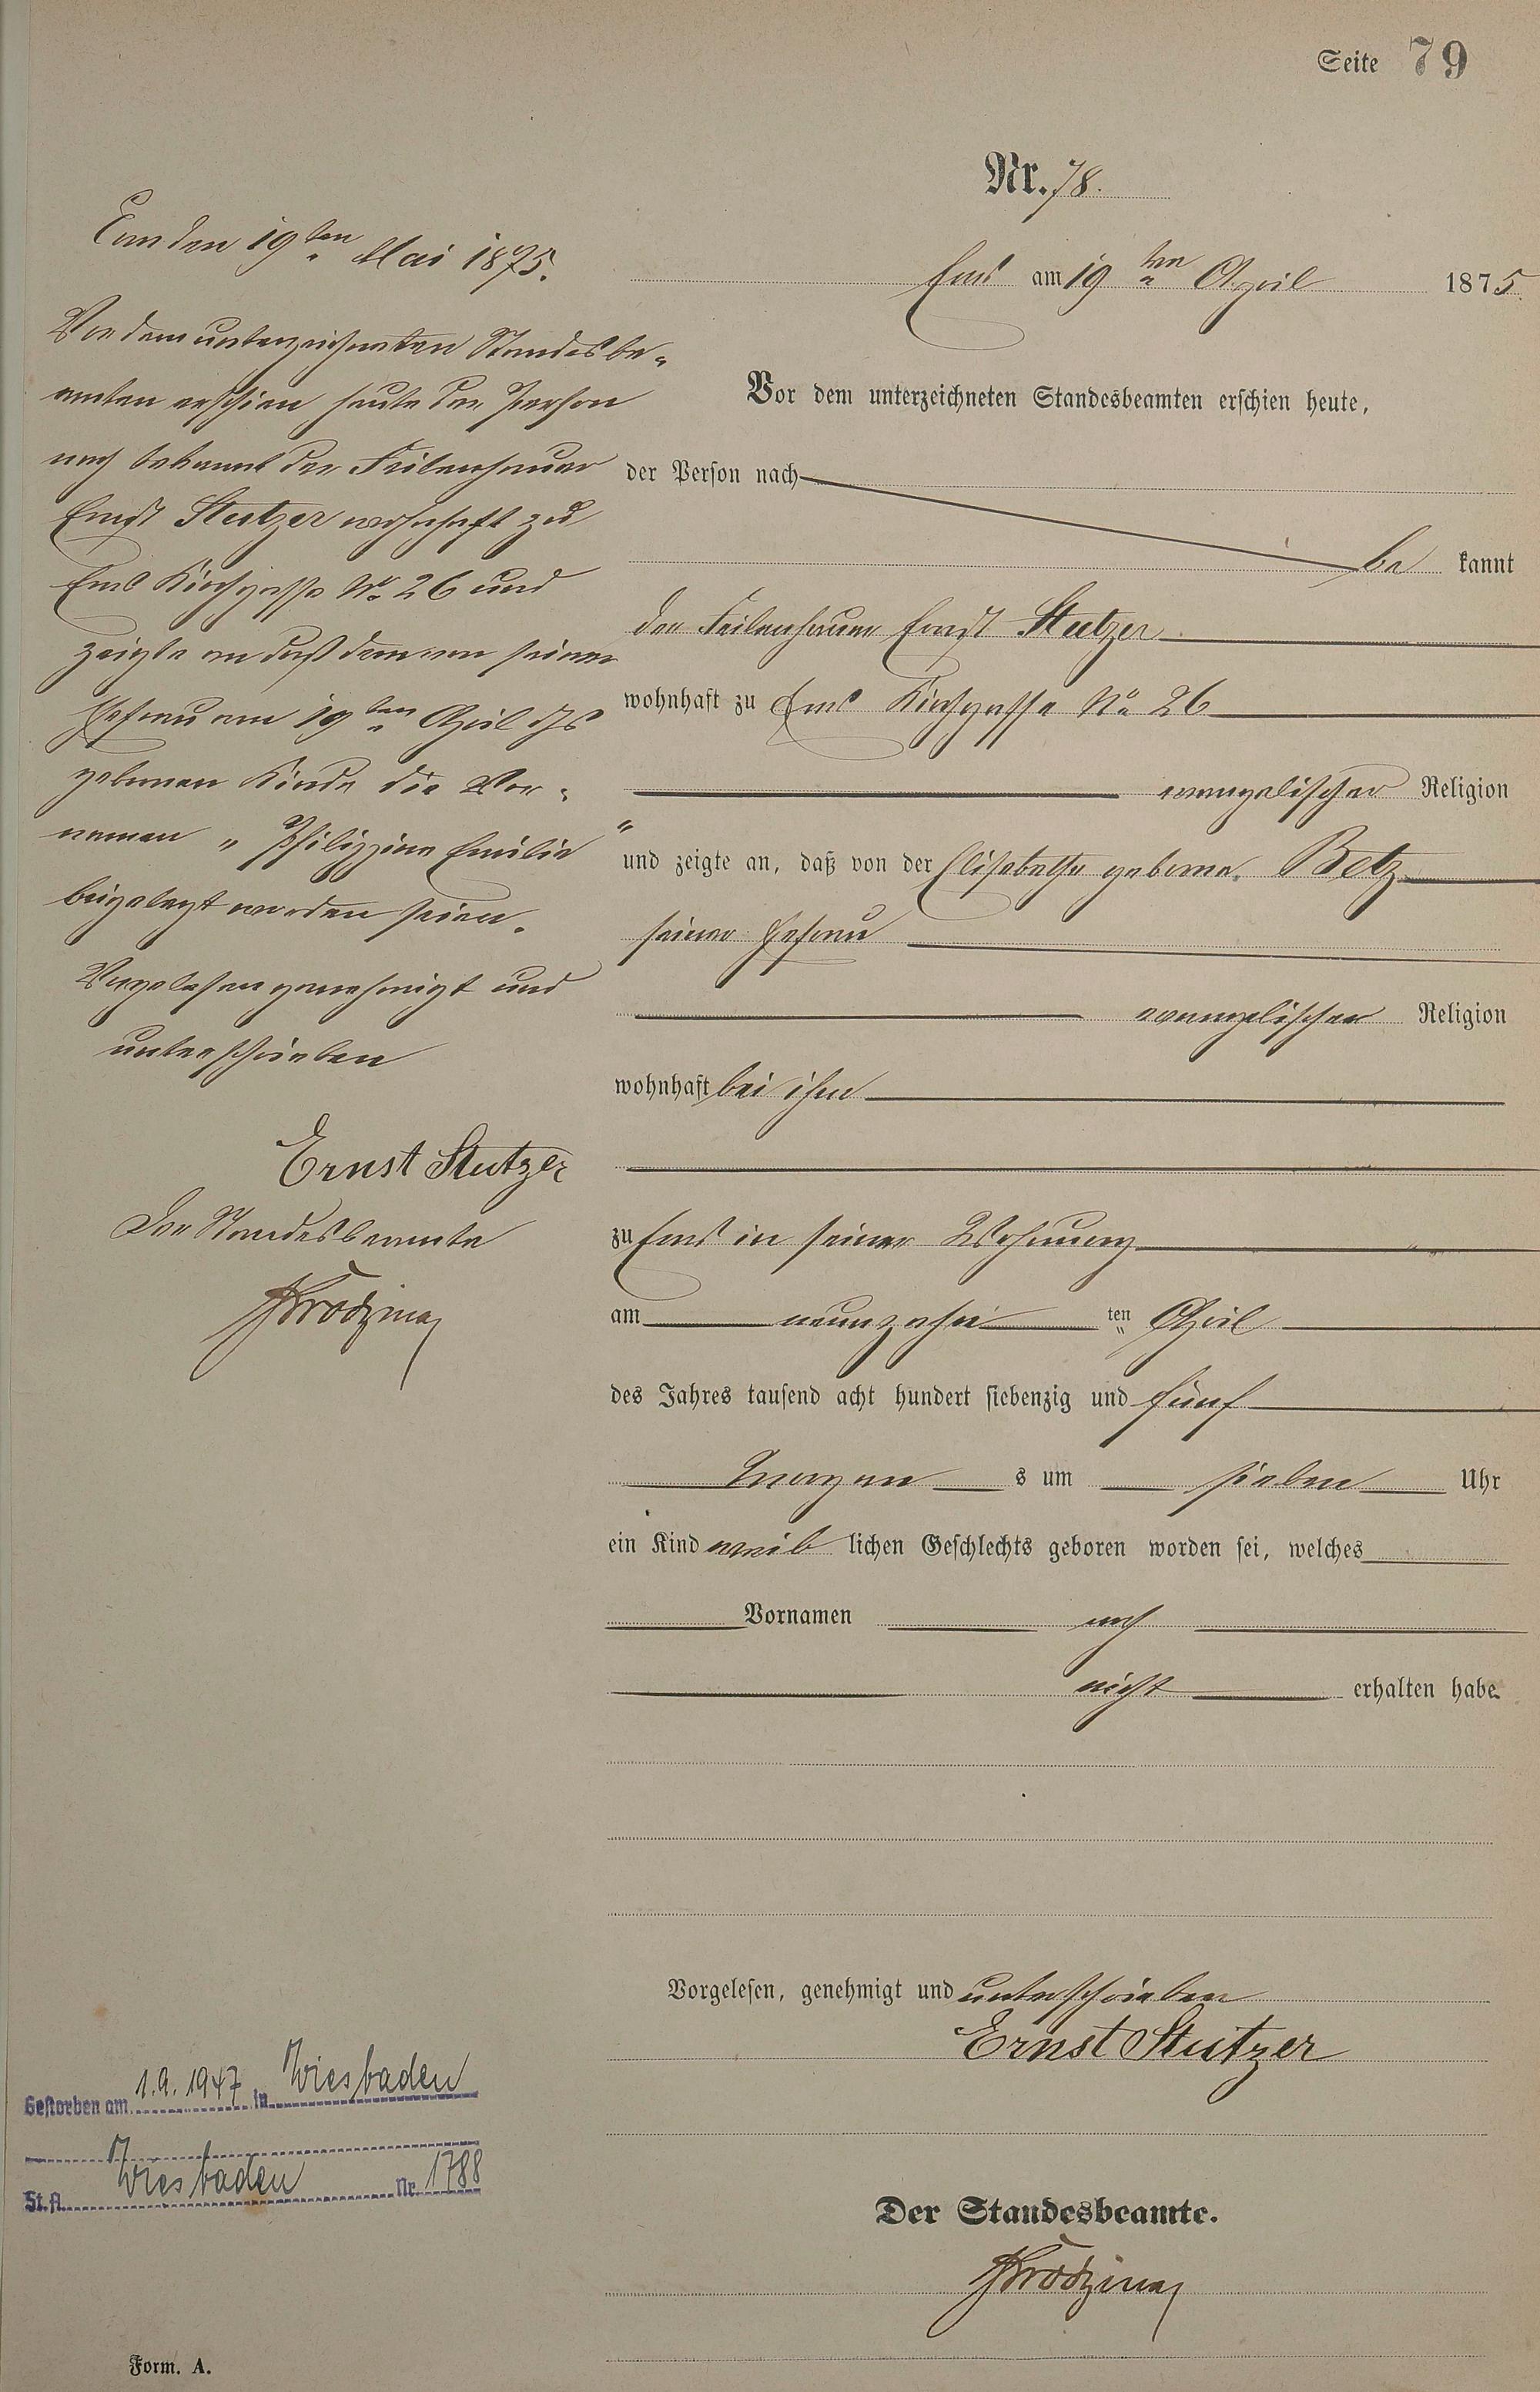 Seite 79
Nr. 78.
Ems am 19ten April 1875.
Vor dem unterzeichneten Standesbeamten erschien heute,
der Person nach
be kannt
der Feilenhauer Ernst Stutzer
wohnhaft zu Ems Kirchgasse No 26
evangelischer Religion
und zeigte an, daß von der Elisabetha geborne Betz
seiner Ehefrau
evangelischer Religion
wohnhaft bei ihm
zu Ems in seiner Wohnung
am neunzehn ten April
des Jahres tausend acht hundert siebenzig und fünf
Morgen s um sieben Uhr
ein Kind weib lichen Geschlechts geboren worden sei, welches
Vornamen noch
nicht erhalten habe
Vorgelesen, genehmigt und unterschrieben
Ernst Stutzer
Der Standesbeamte.
Ems den 19ten Mai 1875.
Vor dem unterzeichneten Standesbe-
amten erschien heute der Person
nach bekannt der Feilenhauer
Ernst Stutzer wohnhaft zu
Ems Kirchgasse No 26 und
zeigte an daß dem von seiner
Ehefrau am 19ten April ds Js
gebornen Kinde die Vor-
namen „Philippine Emilie"
beigelegt worden seien.
Vorgelesen genehmigt und
unterschrieben
Ernst Stutzer
Der Standesbeamte
Gestorben am 1.9.1947 in Wiesbaden
St.A. Wiesbaden Nr. 1788
Form. A.